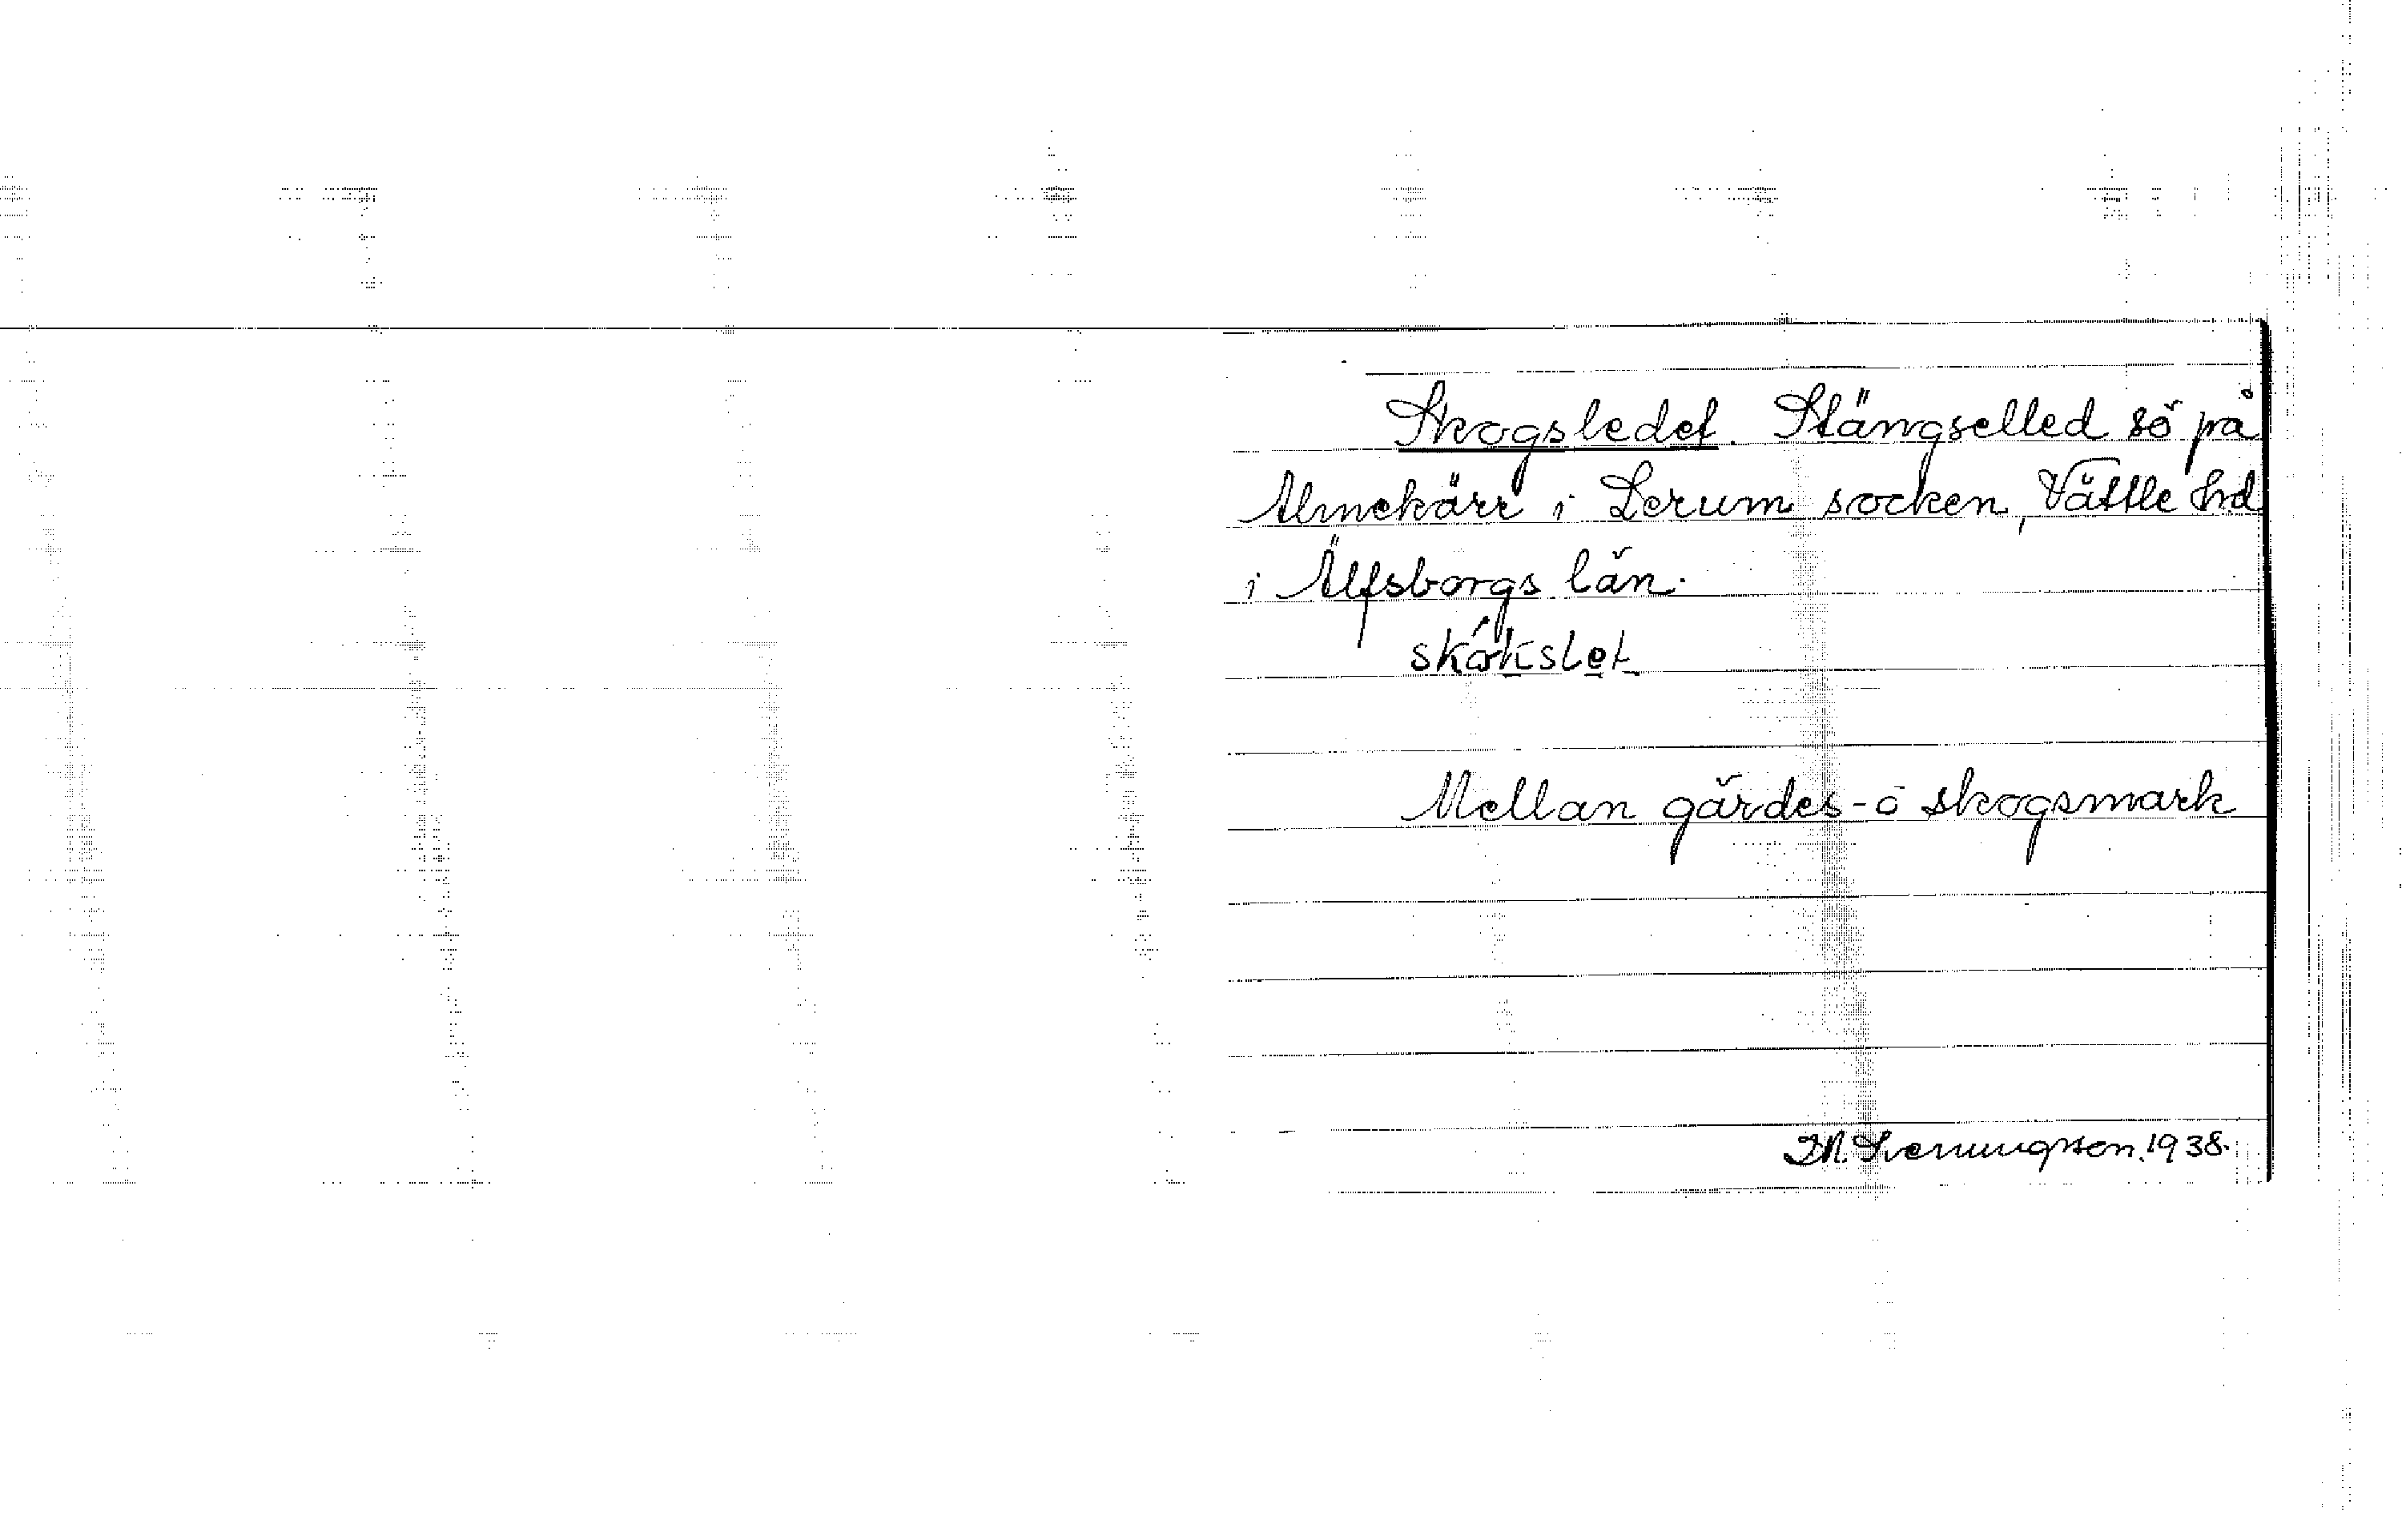 Skogsledet. Stängselled sö på
Almekärr i Lerum socken, Vättle hd
i Älfsborgs län.
skókslet
Mellan gärdes- o skogsmark
1938.